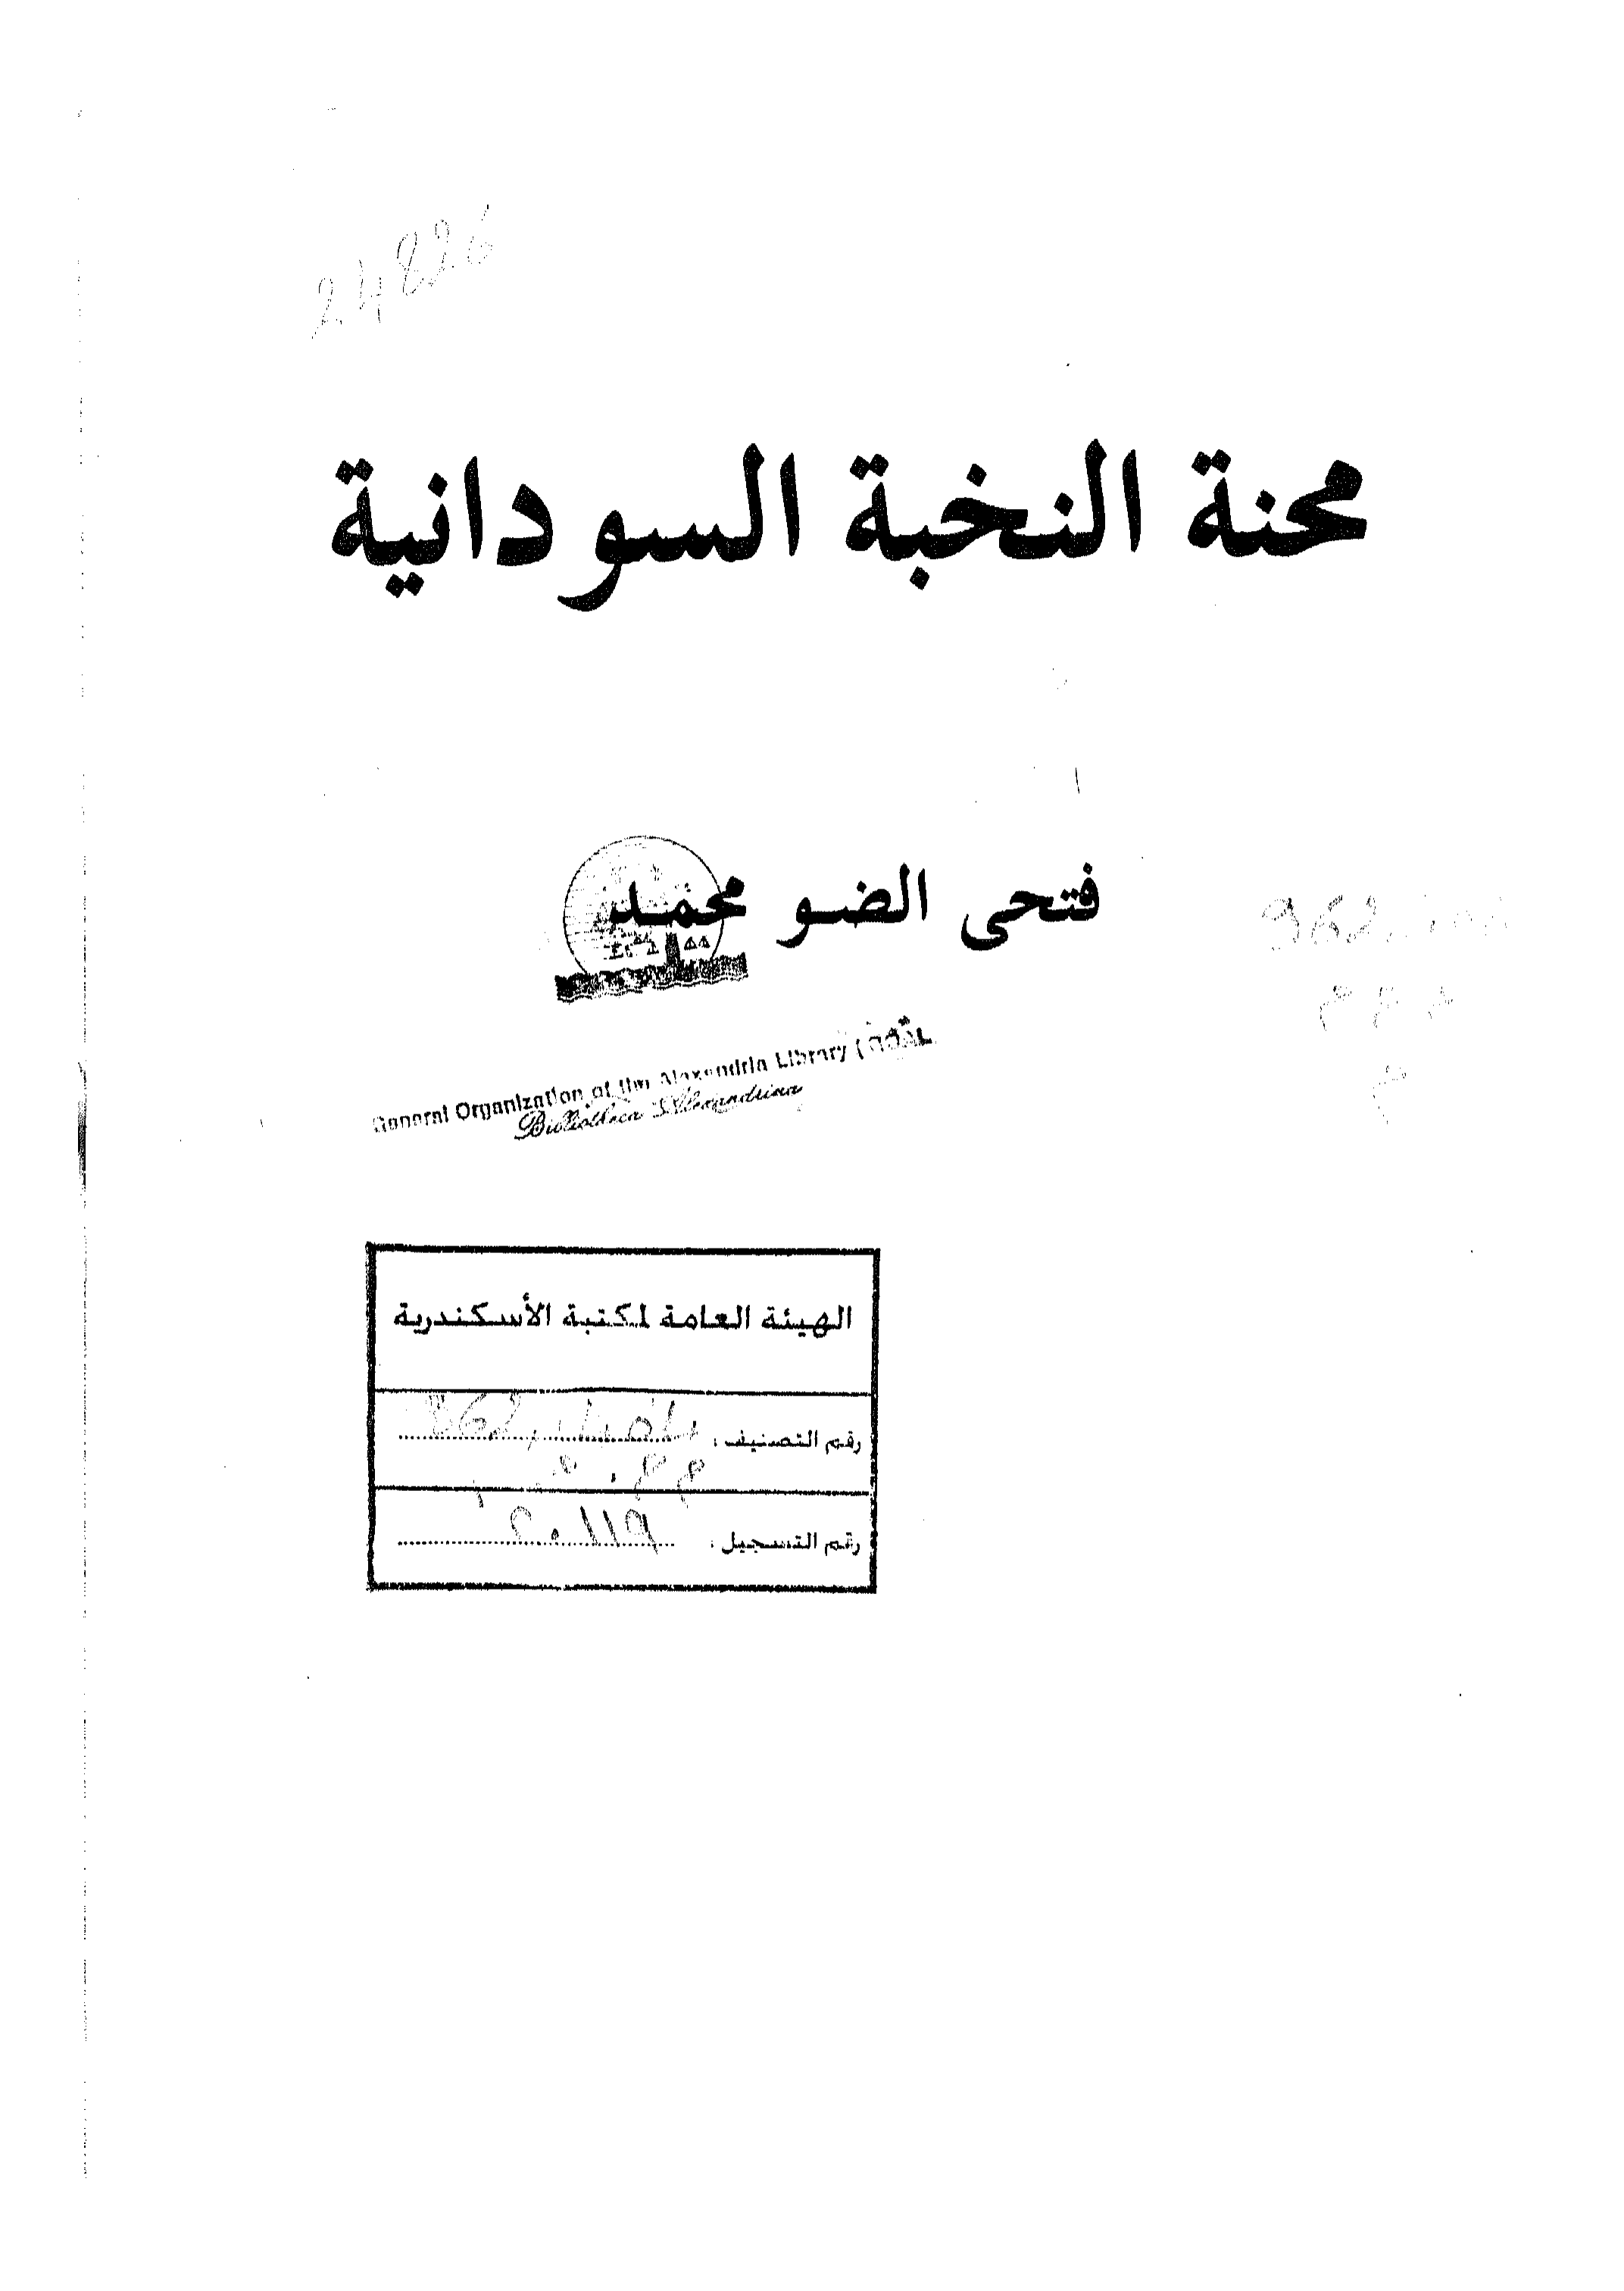 24826
محنة النخبة السودانية
فتحى الضو محمد
General Organization of the Alexandria Library (GOAL
Bibliotheca Alexandrina
الهيئة العامة لمكتبة الأسكندرية
رقم التصنيف :
رقم التسجيل :